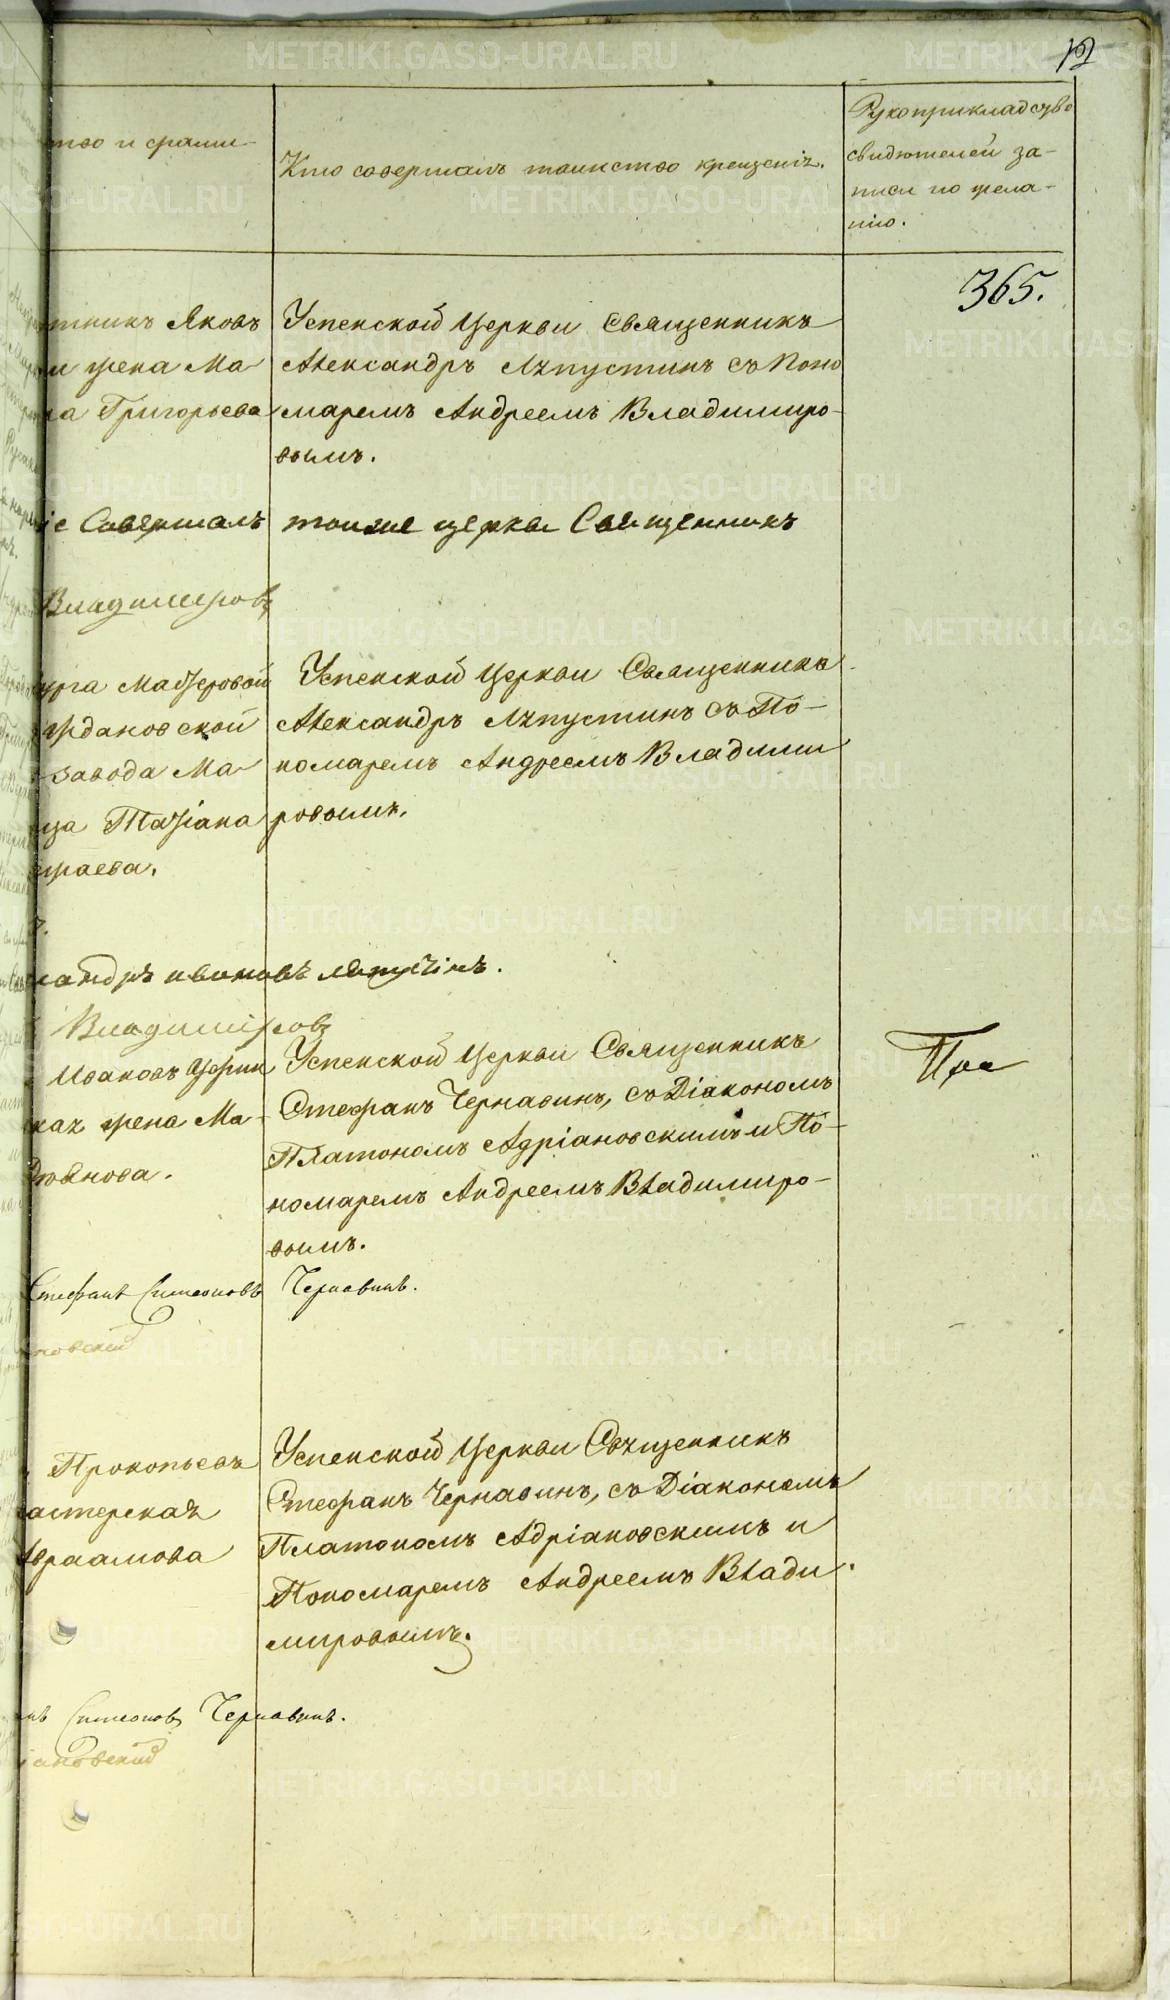 12
тво и фами-
Кто совершалъ таинство крещенія.
Рукоприкладство
свидѣтелей за-
писи по жела-
нію.
365.
тникъ Яковъ
и жена Ма-
на Григорьева
Успенской Церкви Священникъ
Александръ Ляпустинъ съ Поно
маремъ Андреемъ Владимиро-
вымъ.
іе Совершалъ тоиже церкви Священникъ
Владимировъ
урга Мастеровой
Ждановской
завода Ма-
ца Татіана
жаева.
Успенской Церкви Священникъ
Александръ Ляпустинъ съ По-
номаремъ Андреемъ Владими
ровымъ.
сандръ ивановъ ляпустинъ.
Владиміровъ
Ивановъ
кая жена Ма-
янова.
Успенской Церкви Священникъ
Стефанъ Чернавинъ, съ Діакономъ
Платономъ Адріановскимъ и По-
номаремъ Андреемъ Владимиро-
вымъ.
Стефанъ Симеоновъ Чернавинъ.
новскій
Прокопьевъ
астерская
Авраамова
Успенской Церкви Священникъ
Стефанъ Чернавинъ, съ Діакономъ
Платономъ Адріановскимъ и
Пономаремъ Андреемъ Влади
мировымъ.
нъ Симеоновъ Чернавинъ.
іановскій
METRIKI.GASO-URAL.RU